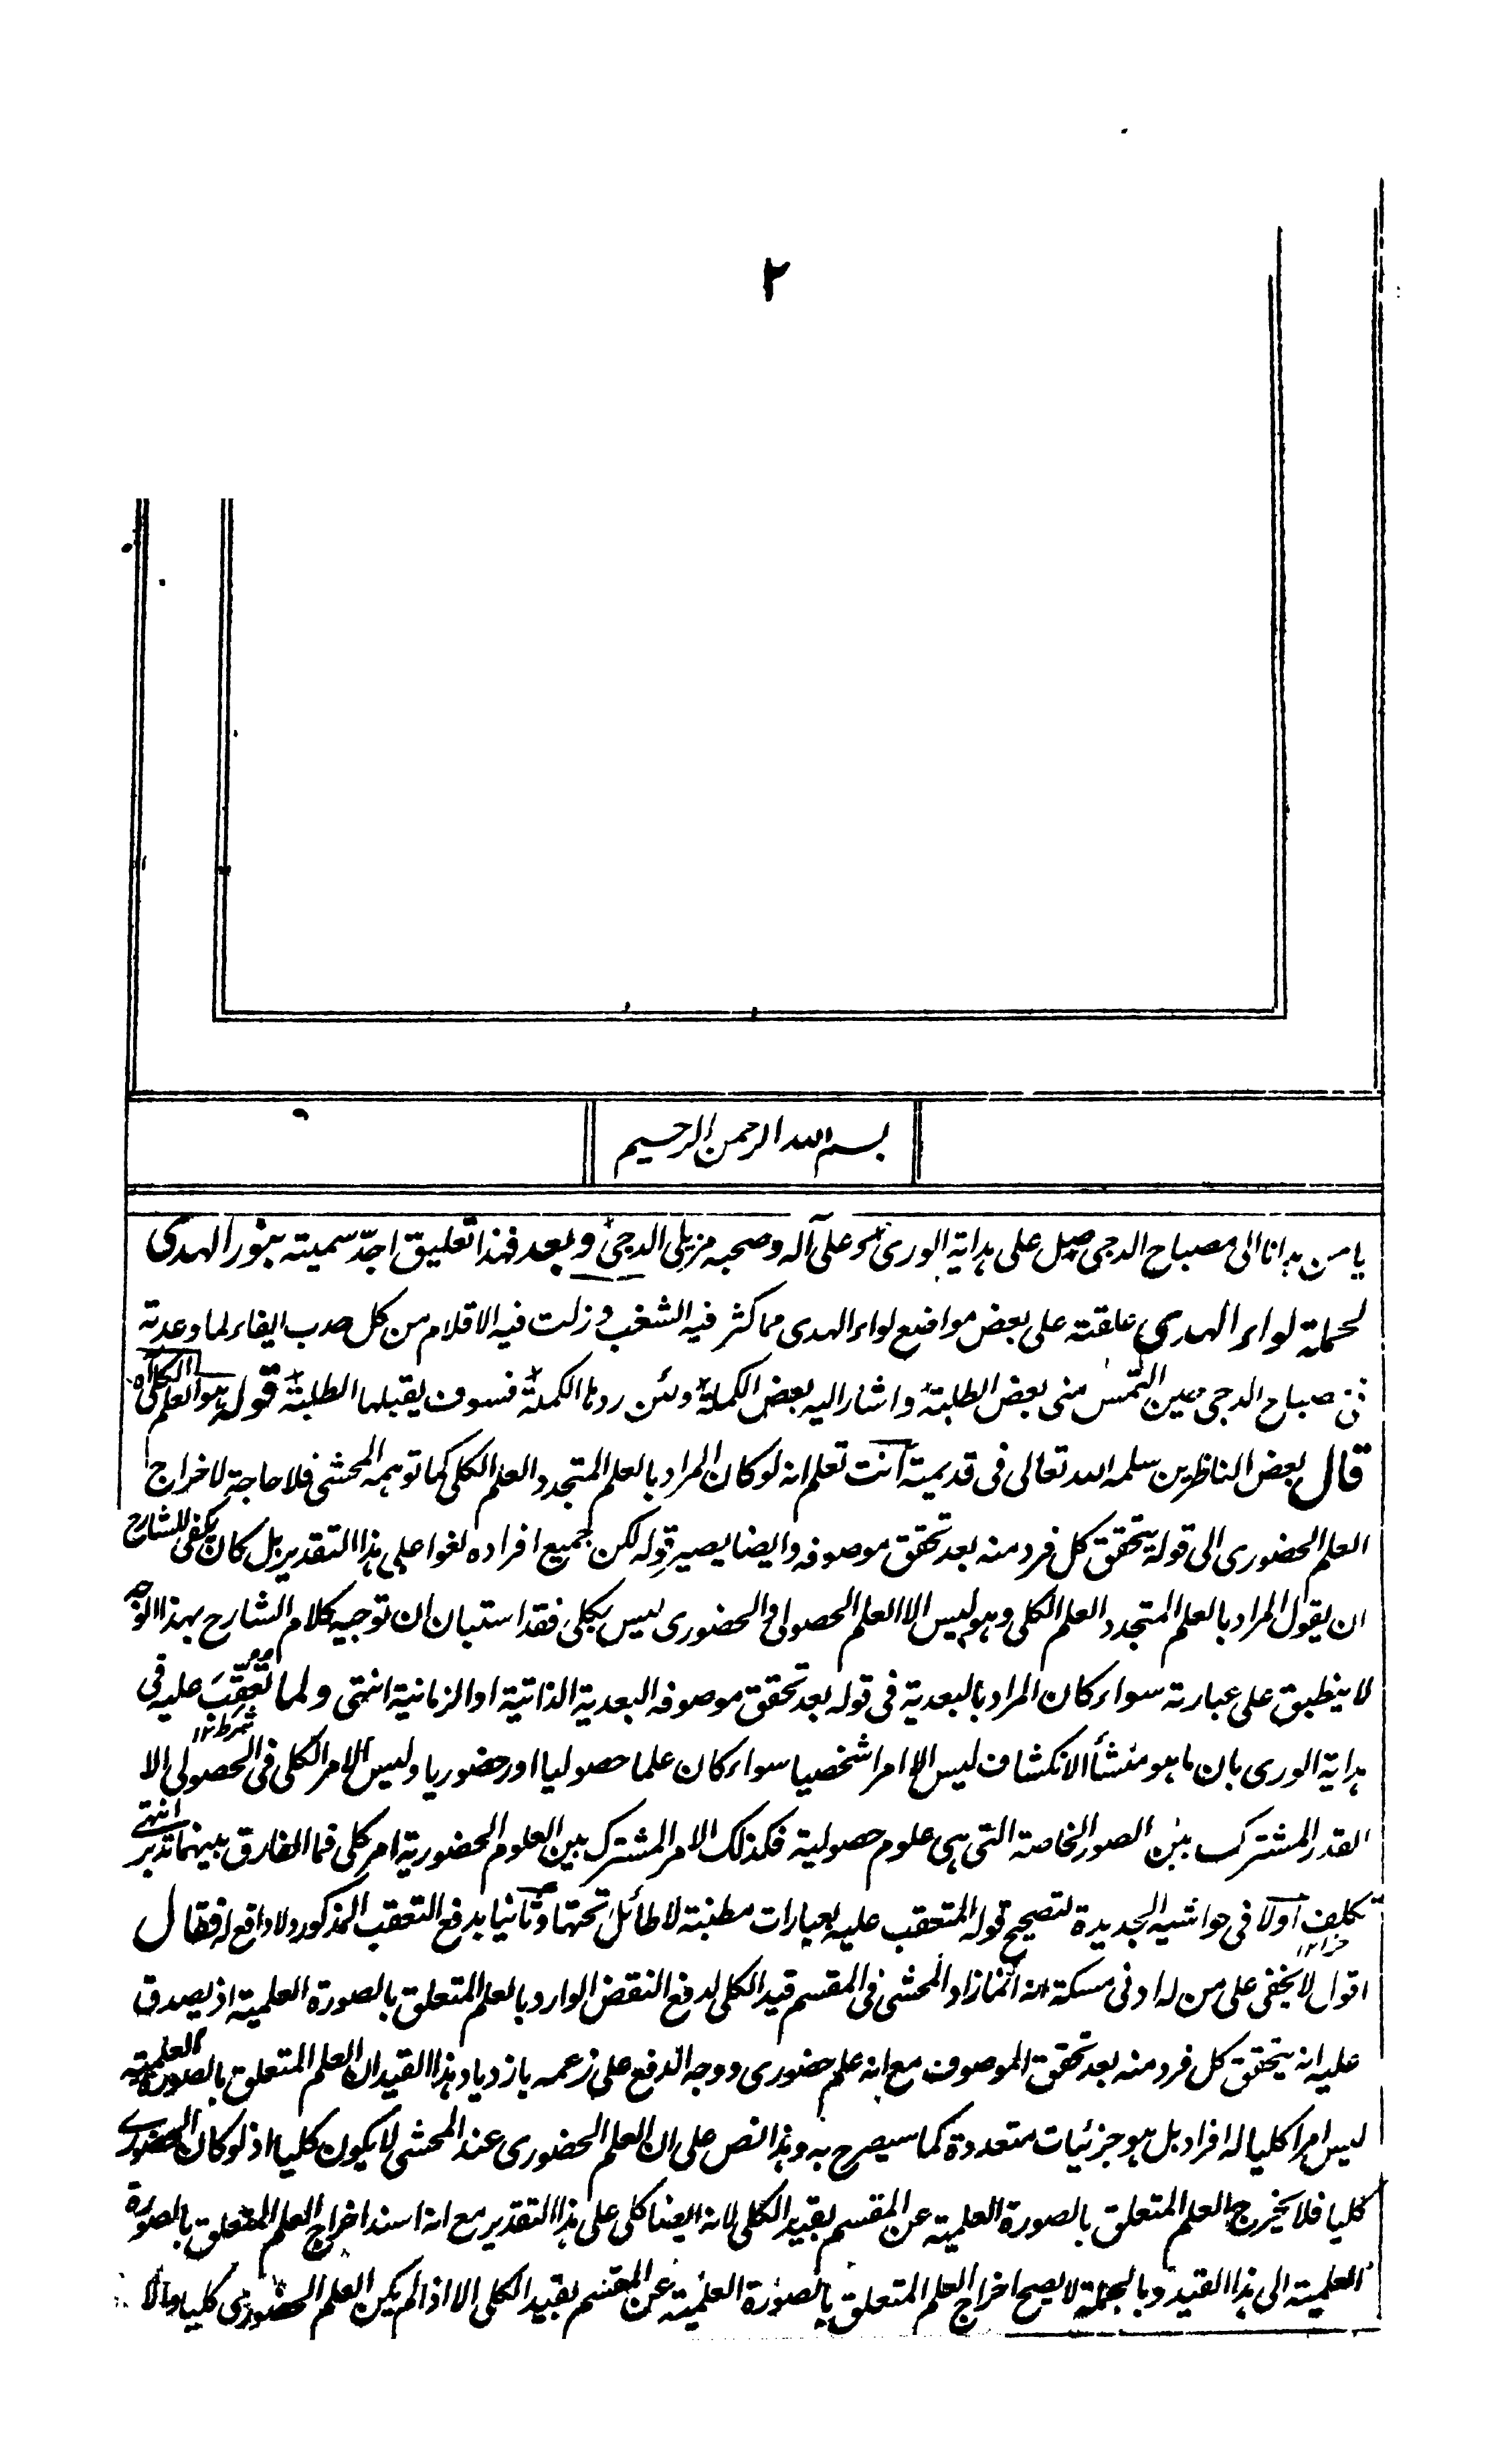 ٢
بسم الله الرحمن الرحيم
يا من هدانا الى مصباح الدجى صل على هداية الورى وعلى آله وصحبه مزيلى الدجى وبعد فهذا تعليق اجدّ سميته بنور الهدى
لحملة لواء الهدى علقته على بعض مواضع لواء الهدى مما كثر فيه الشغب وزلت فيه الاقلام من كل صدب ايفاء لما وعدته
فى مصباح الدجى حين التمس منى بعض الطلبة واشار اليه بعض الكملة ولئن ردها الكملة فسوف يقبلها الطلبة قوله هو العلم الكلى اه
قال بعض الناظرين سلمه الله تعالى فى قديمته انت تعلم انه لو كان المراد بالعلم المتجدد العلم الكلى كما توهمه المحشى فلا حاجة لاخراج
العلم الحضورى الى قوله يتحقق كل فرد منه بعد تحقق موصوفه وايضا يصير قوله لكن جميع افراده لغوا على هذا التقدير بل كان يكفى للشارح
ان يقول المراد بالعلم المتجدد العلم الكلى وهو ليس الا العلم الحصولى والحضورى ليس بكلى فقد استبان ان توجيه كلام الشارح بهذا الوجه
لا ينطبق على عبارته سواء كان المراد بالبعدية فى قوله بعد تحقق موصوفه البعدية الذاتية او الزمانية انتهى ولما تعقّبَ عليه فى
شرط ١٢
هداية الورى بان ما هو منشأ الانكشاف ليس الا امرا شخصيا سواء كان علما حصوليا او حضوريا وليس الامر الكلى فى الحصولى الا
القدر المشترك بين الصور الخاصة التى هى علوم حصولية فكذلك الامر المشترك بين العلوم الحضورية امر كلى فما الفارق بينهما تدبر انتهى
تكلف اولا فى حواشيه الجديدة لتصحيح قوله المتعقب عليه بعبارات مطنبة لا طائل تحتها وثانيا بدفع التعقب المذكور ولا دافع له فقال
جزا ١٢
اقول لا يخفى على من له ادنى مسكة انه انما زاد المحشى فى المقسم قيد الكلى لدفع النقض الوارد بالعلم المتعلق بالصورة العلمية اذ يصدق
عليه انه يتحقق كل فرد منه بعد تحقق الموصوف مع انه علم حضورى ووجه الدفع على زعمه بازدياد هذا القيد ان العلم المتعلق بالصورة العلمية
ليس امرا كليا له افراد بل هو جزئيات متعددة كما سيصرح به وهذا نص على ان العلم الحضورى عند المحشى لا يكون كليا اذ لو كان الحضورى
كليا فلا يخرج العلم المتعلق بالصورة العلمية عن المقسم بقيد الكلى لانه ايضا كلى على هذا التقدير مع انه اسند اخراج العلم المتعلق بالصورة
العلمية الى هذا القيد وبالجملة لا يصح اخراج العلم المتعلق بالصورة العلمية عن المقسم بقيد الكلى الا اذا لم يكن العلم الحضورى كليا والا